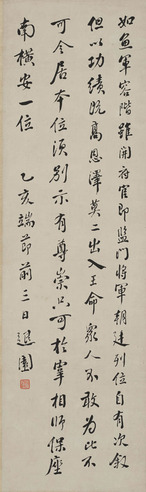 如魚軍容階雖開府官即監門將軍朝廷列位自有次敘
但以功績既高恩澤莫二出入王命眾人不敢為比不
可令居本位須別示有尊崇只可於宰相師保座
南橫安一位　乙亥端節前三日　退園